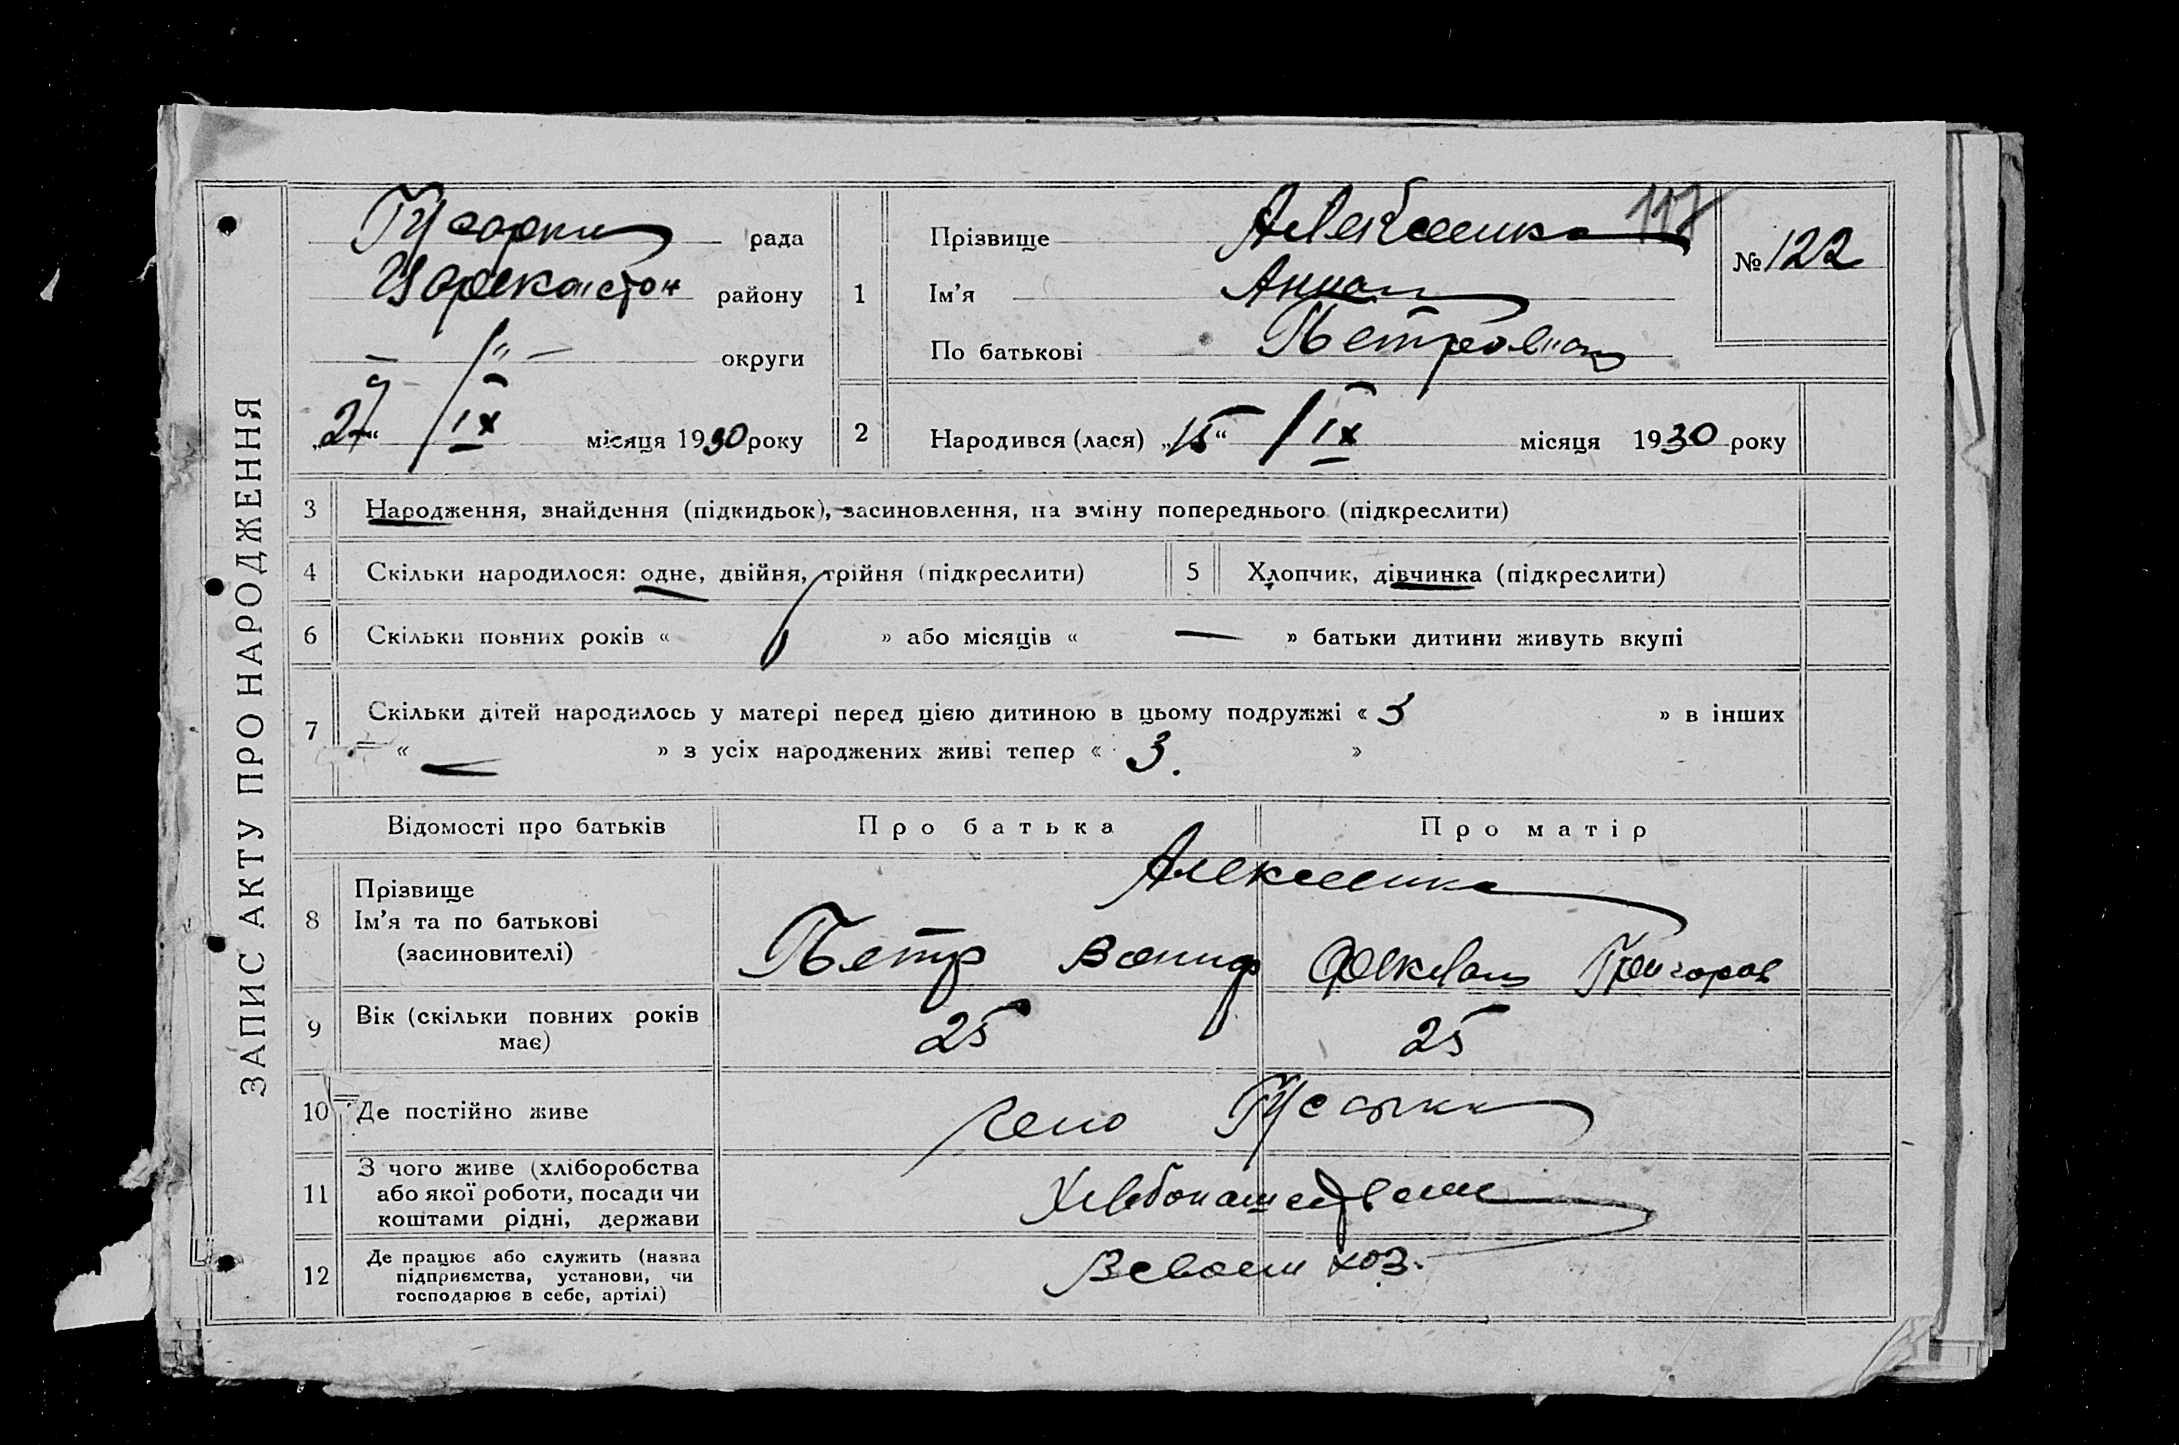 ЗАПИС АКТУ ПРО НАРОДЖЕННЯ
рада
району
округи
IX місяця 1930 року
1
Прізвище 117
Ім'я Анна
По батькові Петровна
№ 122
2 Народився (лася) „15“ / IX місяця 1930 року
3 Народження, знайдення (підкидьок), засиновлення, на зміну попереднього (підкреслити)
4 Скільки народилося: одне, двійня, трійня (підкреслити) 5 Хлопчик, дівчинка (підкреслити)
6 Скільки повних років « » або місяців « — » батьки дитини живуть вкупі
7 Скільки дітей народилось у матері перед цією дитиною в цьому подружжі « 3 » в інших
« — » з усіх народжених живі тепер « 3. »
Відомості про батьків Про батька Про матір
8 Прізвище
Ім'я та по батькові
(засиновителі)
Петр
9 Вік (скільки повних років
має)
25 25
10 Де постійно живе
село
11 З чого живе (хліборобства
або якої роботи, посади чи
коштами рідні, держави
12 Де працює або служить (назва
підприємства, установи, чи
господарює в себе, артілі)
хоз.